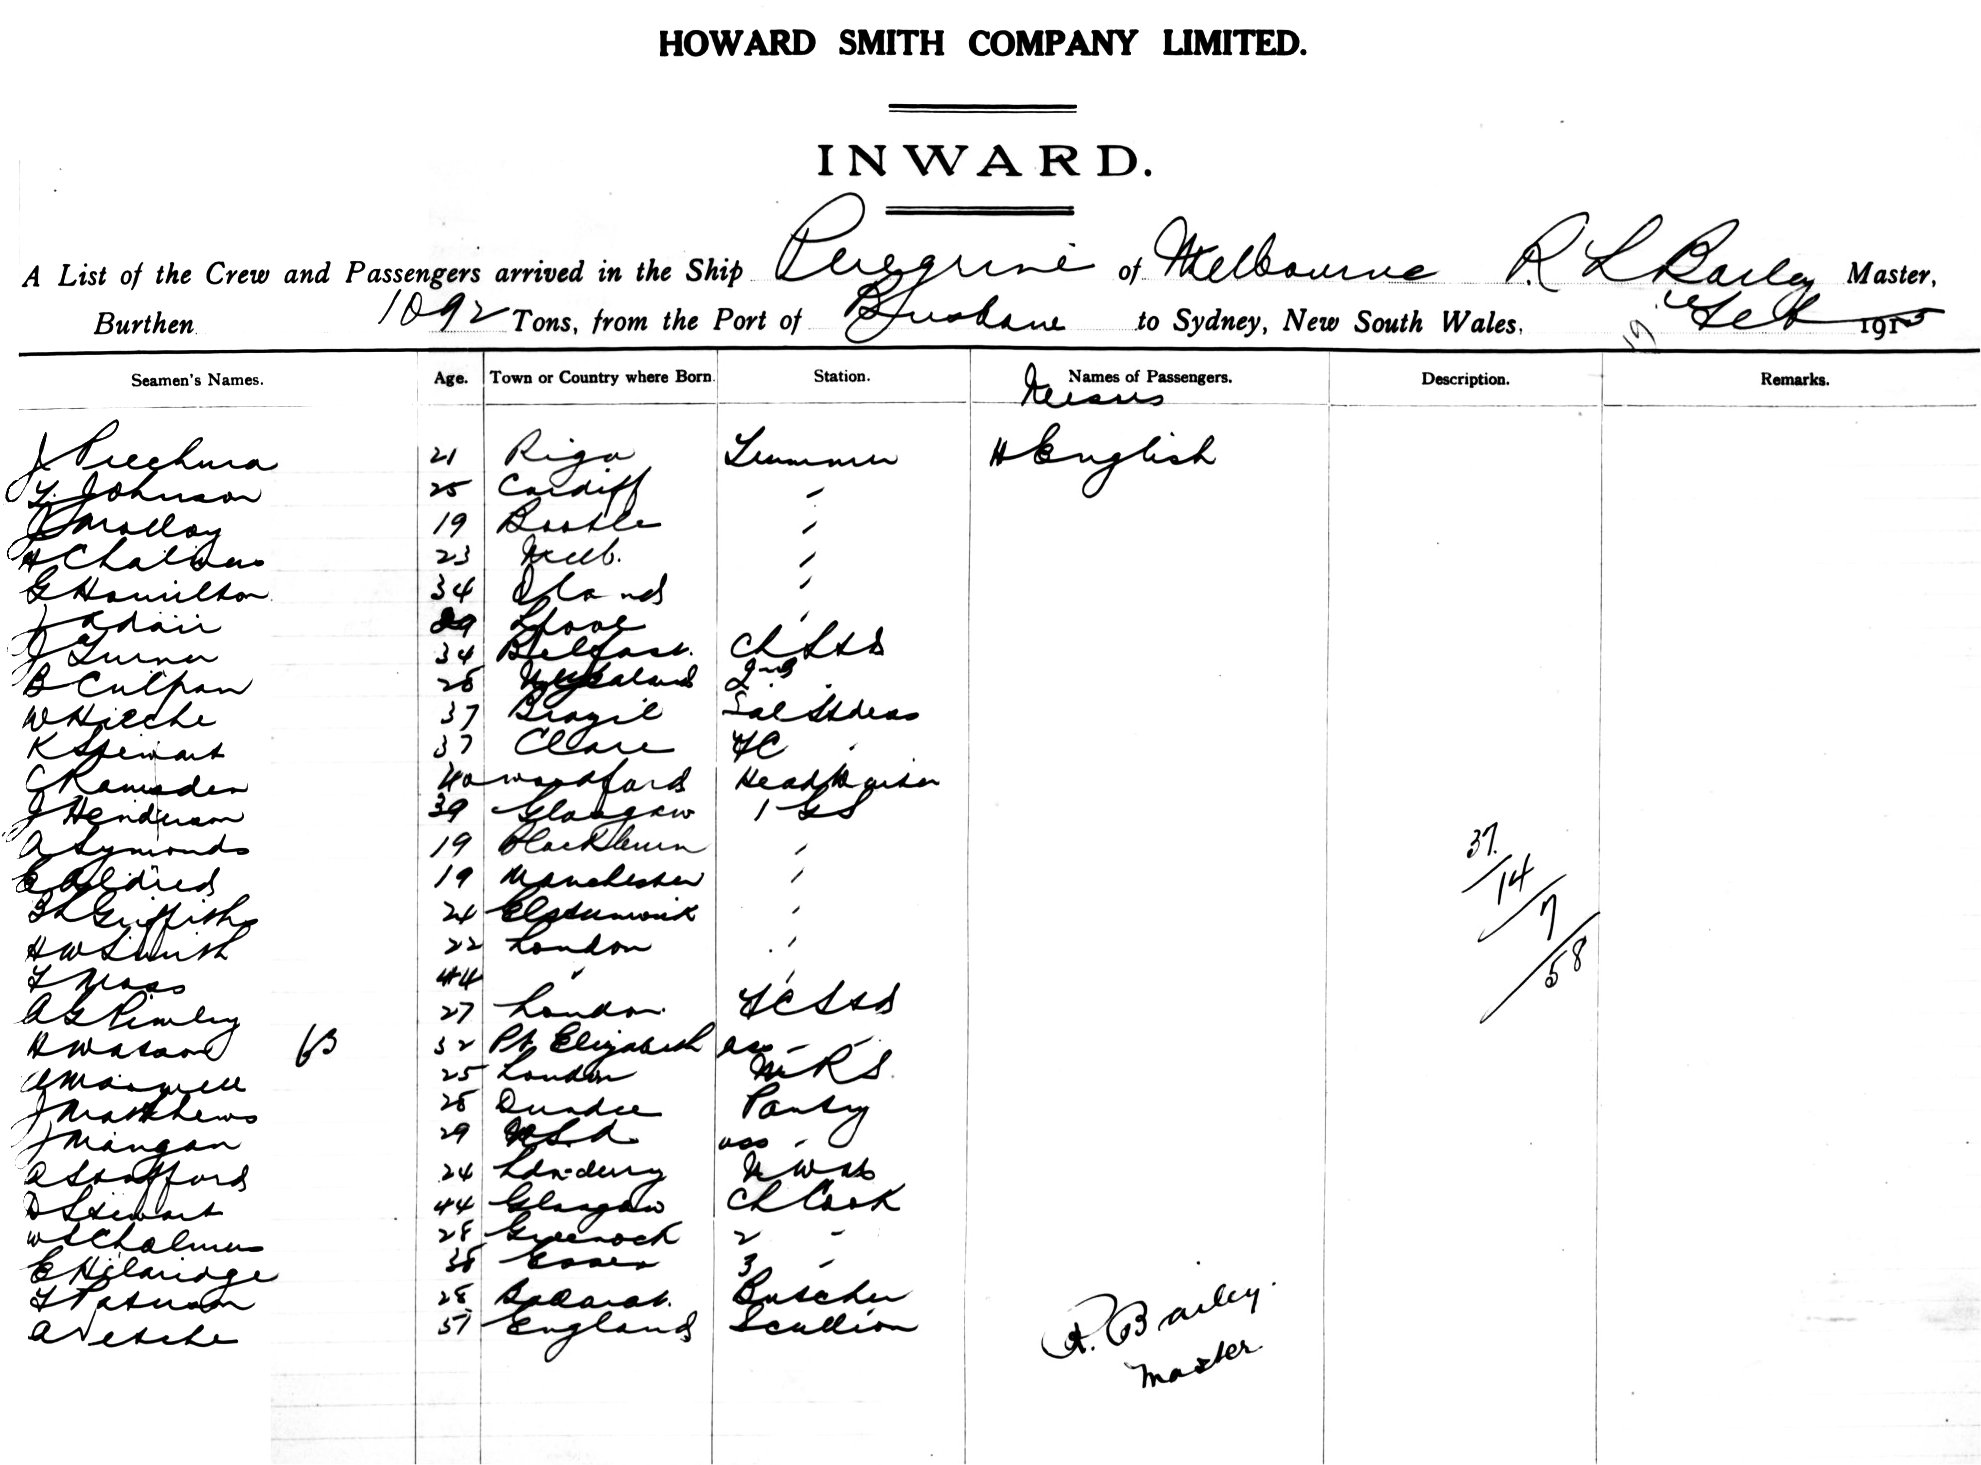 HOWARD SMITH COMPANY LIMITED.
INWARD.
A List of the Crew and Passengers arrived in the Ship Peregrine of Melbourne R L Bailey Master,
Burthen 1092 Tons, from the Port of Brisbane to Sydney, New South Wales, 19 Feb 1915
Seamen's Names. Age. Town or Country where Born. Station. Names of Passengers. Description. Remarks.
Messrs
J 21 Riga Trimmer H English
T. Johnson 25 Cardiff "
J Molloy 19 Bootle "
H Chalmers 23 Melb. "
G Hamilton 34 "
J Adair 29 Lpool "
J Turner 34 Belfast. Ch Std
B Culpan 28 N Zealand 2nd "
W 37 Brazil Sal Stdess
K Stewart 37 Clare FC "
C Ramsden 40 Woodford Head Waiter
J Henderson 39 Glasgow 1 GS
A Symonds 19 Blackburn "
E Aldred 19 Manchester "
B L Griffiths 24 Elsternwick "
H W Smith 22 London "
T Moss 44 " "
A G Pimley 27 London FC Std
H Watson 63 32 Pt. Elizabeth ass - -
A Maxwell 25 London M R S.
J Matthews 28 Dundee Pantry
J Mangan 29 ass -
A Stafford 24 Ldn-derry N W
D Stewart 44 Glasgow Ch Cook
W S Chalmers 28 Greenock 2 -
E Hilaridge 38 Essex 3 -
T Paterson 28 Ballarat. Butcher
A 51 England Scullion
37.
14
7
58
R. Bailey
Master